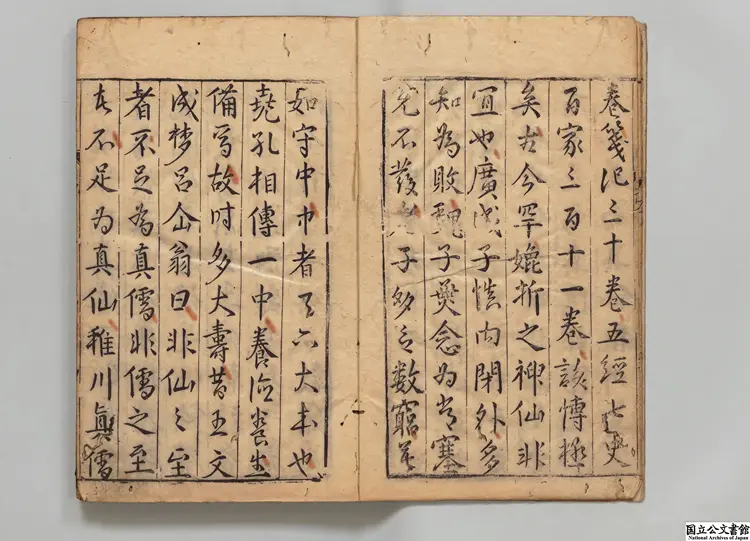 卷箋記三十卷五經七史
百家三百十一卷談博極
矣古今罕媲折之神仙非
冝也廣成子慎内閉外多
知為敗魏子無念為常塞
兌不發老子多言數窮不
如守中中者天下大本也
堯孔相傳一中養德養生
備焉故時多大壽昔王文
成梦呂仚翁曰非仙之至
者不足為真儒非儒之至
者不足為真仙稚川真儒
国立公文書館
National Archives of Japan